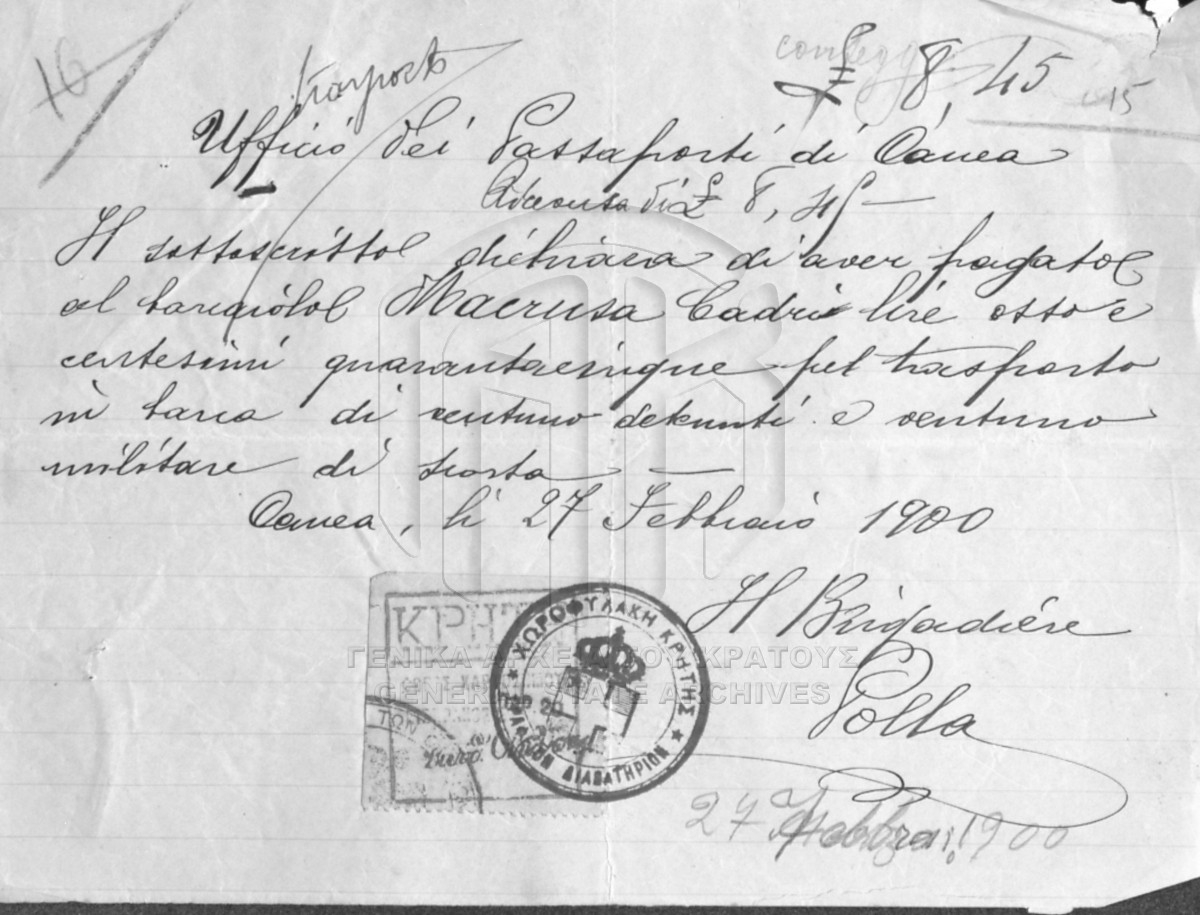 16
trasporto
£ 8,45
15
Ufficio dei Passaporti di Canea
di £ 8,45 —
Il sottoscritto dichiara di aver pagato
al barcaiolo Macrusa Cadri lire otto e
centesimi quarantacinque pel trasporto
in barca di ventuno detenuti e ventuno
militare di scorta —
Canea, li 27 Febbraio 1900
Il Brigadiere
Polla
ΚΡΗΤ
ΤΩΝ
ΧΩΡΟΦΥΛΑΚΗ ΚΡΗΤΗΣ
ΔΙΑΒΑΤΗΡΙΩΝ
ΓΕΝΙΚΑ ΑΡΧΕΙΑ ΤΟΥ ΚΡΑΤΟΥΣ
GENERAL STATE ARCHIVES
27 Febbraio 1900